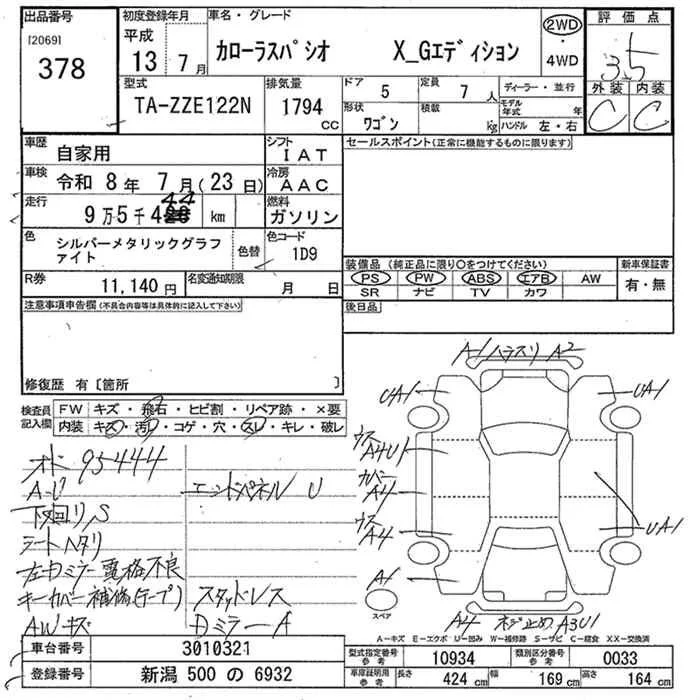 出品番号 [2069] 378
初度登録年月 平成 13年 7月
車名・グレード カローラスパシオ X_Gエディション
2WD・4WD
評価点 3.5
外装 C 内装 C
型式 TA-ZZE122N
排気量 1794 CC
ドア 5
形状 ワゴン
定員 7人
積載 kg
ディーラー・並行
モデル年式 年
ハンドル 左・右
車歴 自家用
シフト IAT
車検 令和 8年 7月(23日)
冷房 AAC
走行 9万5千444 km
燃料 ガソリン
色 シルバーメタリックグラファイト
色替
色コード 1D9
R券 11,140円
名変通知期限 月 日
セールスポイント(正常に機能するものに限ります)
装備品(純正品に限り○をつけてください)
PS PW ABS エアB AW
SR ナビ TV カワ
新車保証書 有・無
後日品
注意事項申告欄(不具合内容等は具体的に記入して下さい)
修復歴 有〔箇所 〕
検査員記入欄
FW キズ・飛石・ヒビ割・リペア跡・×要
内装 キズ・汚レ・コゲ・穴・スレ・キレ・破レ
オド 95444
A-U エンドパネル U
下廻リS
シートヘタリ
左Dミラー電格不良
キーカバー補修(テープ) スタッドレス
AWキズ Dミラー A
A1 ハラスリ A2
UA1 UA1
ウス A4U1
カバー A4
ウス A4 UA1
A1
スペア
A4 ネジ止め A3U1
A-キズ E-エクボ U-凹み W-補修跡 S-サビ C-腐食 XX-交換済
車台番号 3010321
登録番号 新潟 500 の 6932
型式指定番号 参考 10934
類別区分番号 参考 0033
車庫証明用 参考 長さ 424 cm 幅 169 cm 高さ 164 cm